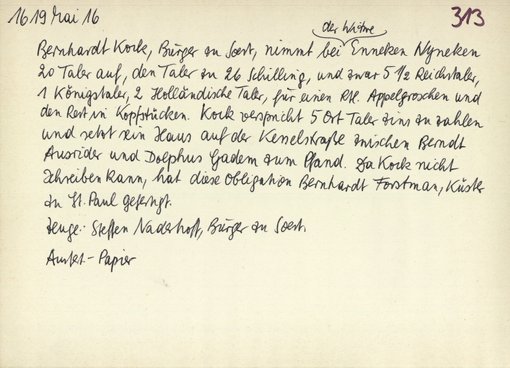 1619 Mai 16
313
der Witwe
Bernhardt Kock, Bürger zu Soest, nimmt bei Enneken Nyneken
20 Taler auf, den Taler zu 26 Schilling, und zwar 5 1/2 Reichstaler,
1 Königstaler, 2 Holländische Taler, für einen Rt. Appelgroschen und
den Rest in Kopfstücken. Kock verspricht 5 Ort Taler zins zu zahlen
und setzt sein Haus auf der Kesselstraße zwischen Berndt
Ausrider und Dolphus Gadem zum Pfand. Da Kock nicht
schreiben kann, hat diese Obligation Bernhardt Forstman, Küster
zu St. Paul gefertigt.
Zeuge: Steffen Naderhoff, Bürger zu Soest.
Ausf. - Papier